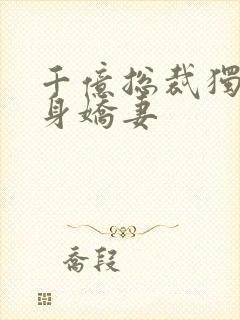 千億總裁獨
身嬌妻
喬段